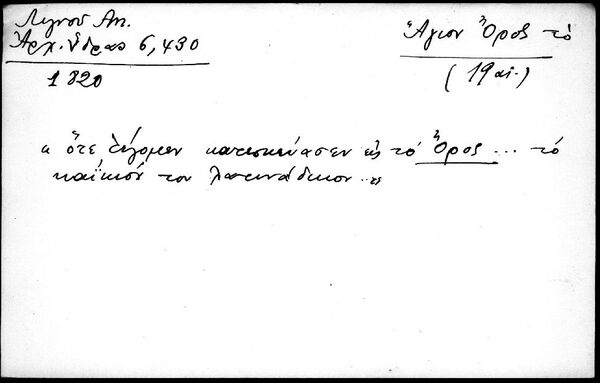 Λιγνού Αν.
Ἀρχ. Ὕδρας 6, 430
1820
Ἅγιον Ὄρος τό
(19 αι.)
« ὅτε λέγομεν κατεσκεύασεν εἰς τό Ὄρος ... τό
καΐκιόν του λατινάδικον .. »